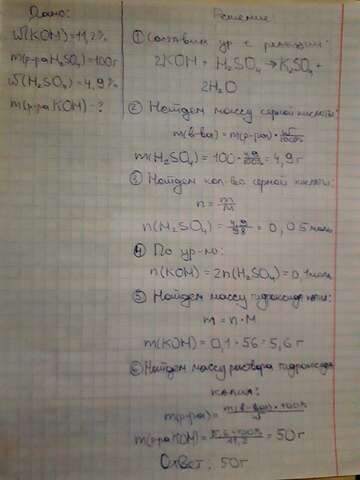 Дано:
W(KOH)=11,2%
m(р-ра H₂SO₄)=100г
W(H₂SO₄)=4,9%
m(р-ра KOH)-?
Решение
① Составим ур-е реакции:
2KOH + H₂SO₄ → K₂SO₄ +
2H₂O
② Найдем массу серной кислоты:
m(в-ва) = m(р-ра) · W/100%
m(H₂SO₄) = 100 · 4,9/100% = 4,9 г
③ Найдем кол-во серной кислоты:
n = m/M
n(H₂SO₄) = 4,9/98 = 0,05 моль
④ По ур-ю:
n(KOH) = 2n(H₂SO₄) = 0,1 моль
⑤ Найдем массу гидроксида калия:
m = n · M
m(KOH) = 0,1 · 56 = 5,6 г
⑥ Найдем массу раствора гидроксида
калия:
m(р-ра) = m(в-ва) · 100%
m(р-ра KOH) = 5,6 · 100%/11,2 = 50 г
Ответ: 50г